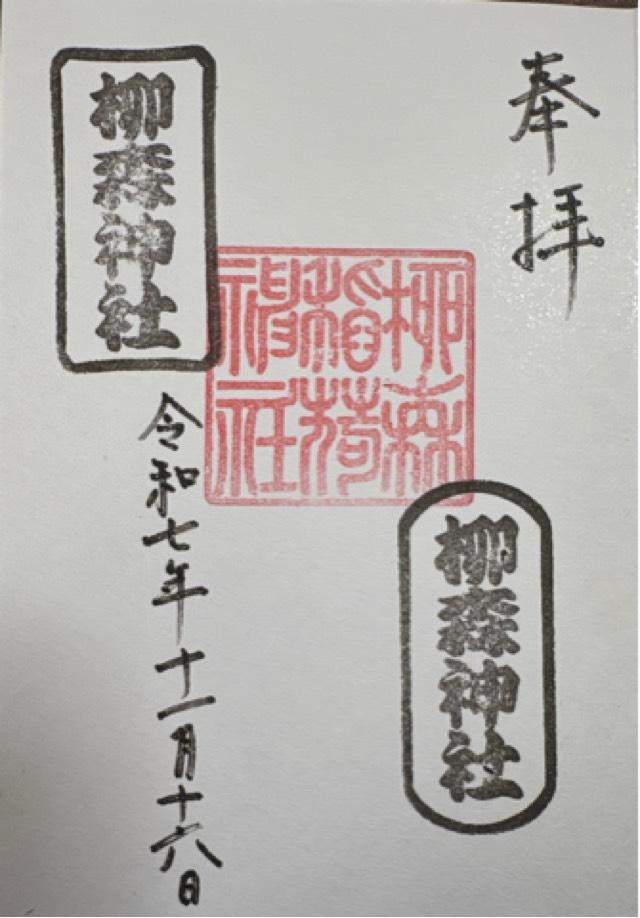 奉拝
柳森神社
柳森
稲荷
神社
柳森神社
令和七年十一月十六日